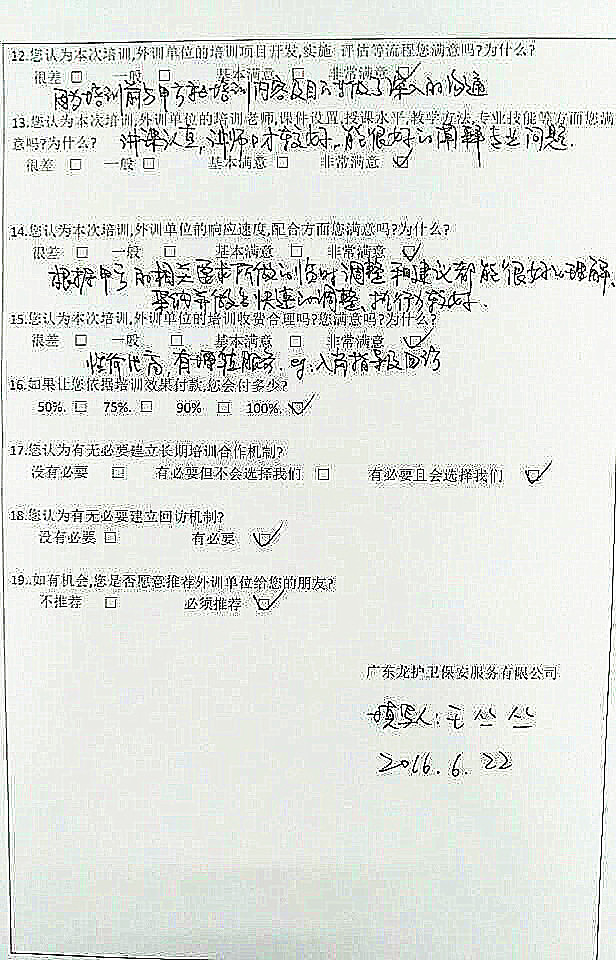 12.您认为本次培训,外训单位的培训项目开发,实施 评估等流程您满意吗?为什么?
很差 □ 一般 □ 基本满意 □ 非常满意 ☑
因为培训前与甲方就培训内容及目 做了深入的沟通
13.您认为本次培训,外训单位的培训老师,课件设置,授课水平,教学方法,专业技能等方面您满
意吗?为什么? 讲课认真,讲师口才较好,能很好的阐释专业问题.
很差 □ 一般 □ 基本满意 □ 非常满意 ☑
14.您认为本次培训,外训单位的响应速度,配合方面您满意吗?为什么?
很差 □ 一般 □ 基本满意 □ 非常满意 ☑
根据甲方的相关要求所做的临时调整和建议都能很好的理解、
采纳并做出快速的调整、执行力较好.
15.您认为本次培训,外训单位的培训收费合理吗?您满意吗?为什么?
很差 □ 一般 □ 基本满意 □ 非常满意 ☑
性价比高,有增值服务. eg:入岗指导及回访
16.如果让您依据培训效果付款,您会付多少?
50%. □ 75%. □ 90% □ 100%. ☑
17.您认为有无必要建立长期培训合作机制?
没有必要 □ 有必要但不会选择我们 □ 有必要且会选择我们 ☑
18.您认为有无必要建立回访机制?
没有必要 □ 有必要 ☑
19..如有机会,您是否愿意推荐外训单位给您的朋友?
不推荐 □ 必须推荐 ☑
广东龙护卫保安服务有限公司
填写人:王丝丝
2016.6.22